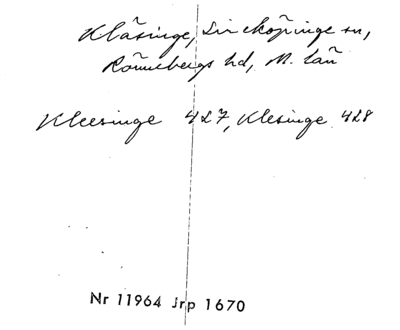 Kläsinge, Simköpinge sn,
Rönnebergs hd, M. län
Kleesinge 427, Klesinge 428
Nr 11964 Jrp 1670